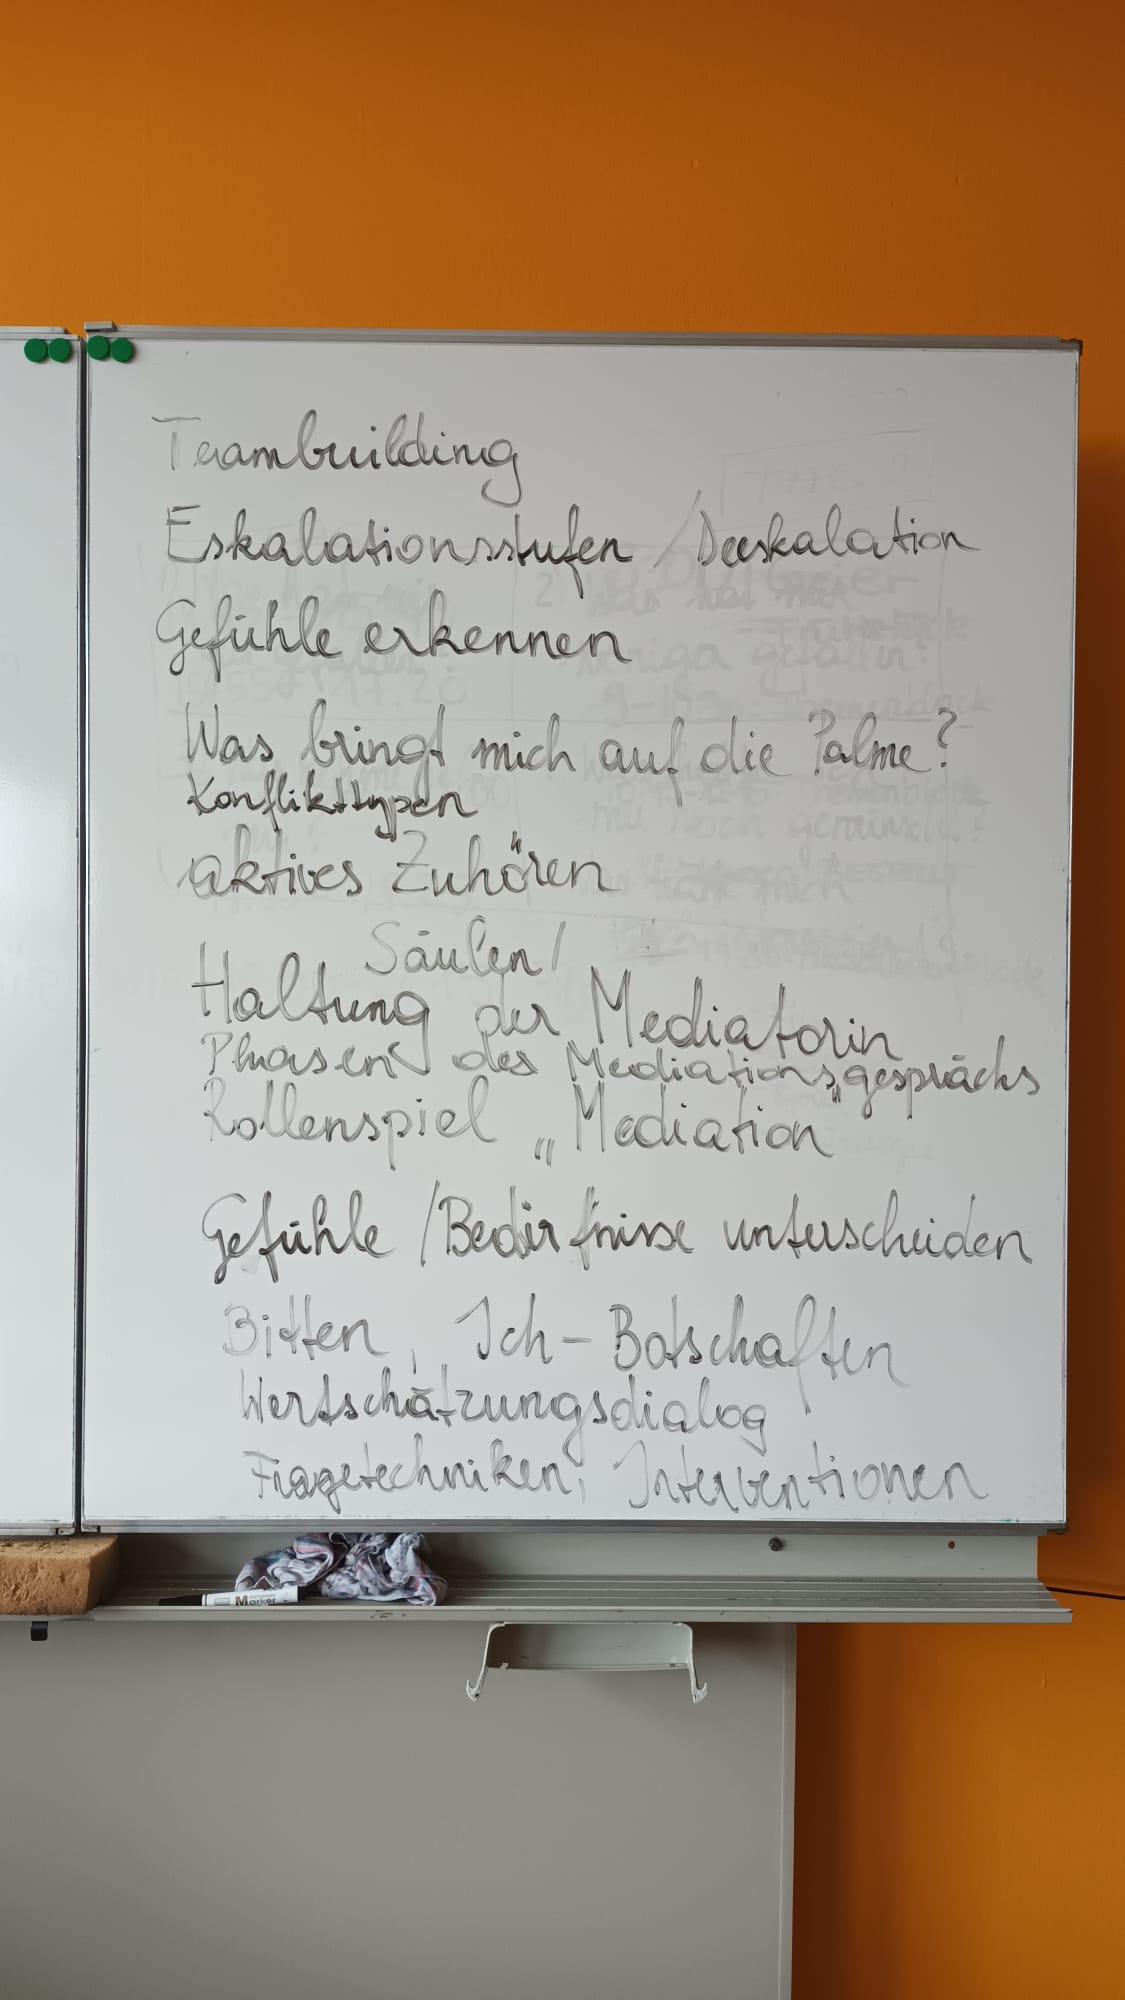 Teambuilding
Eskalationsstufen / Deeskalation
Gefühle erkennen
Was bringt mich auf die Palme?
Konflikttypen
aktives Zuhören
Säulen /
Haltung der Mediatorin
Phasen des Mediationsgesprächs
Rollenspiel „Mediation"
Gefühle / Bedürfnisse unterscheiden
Bitten, Ich-Botschaften
Wertschätzungsdialog
Fragetechniken, Interventionen
Marker